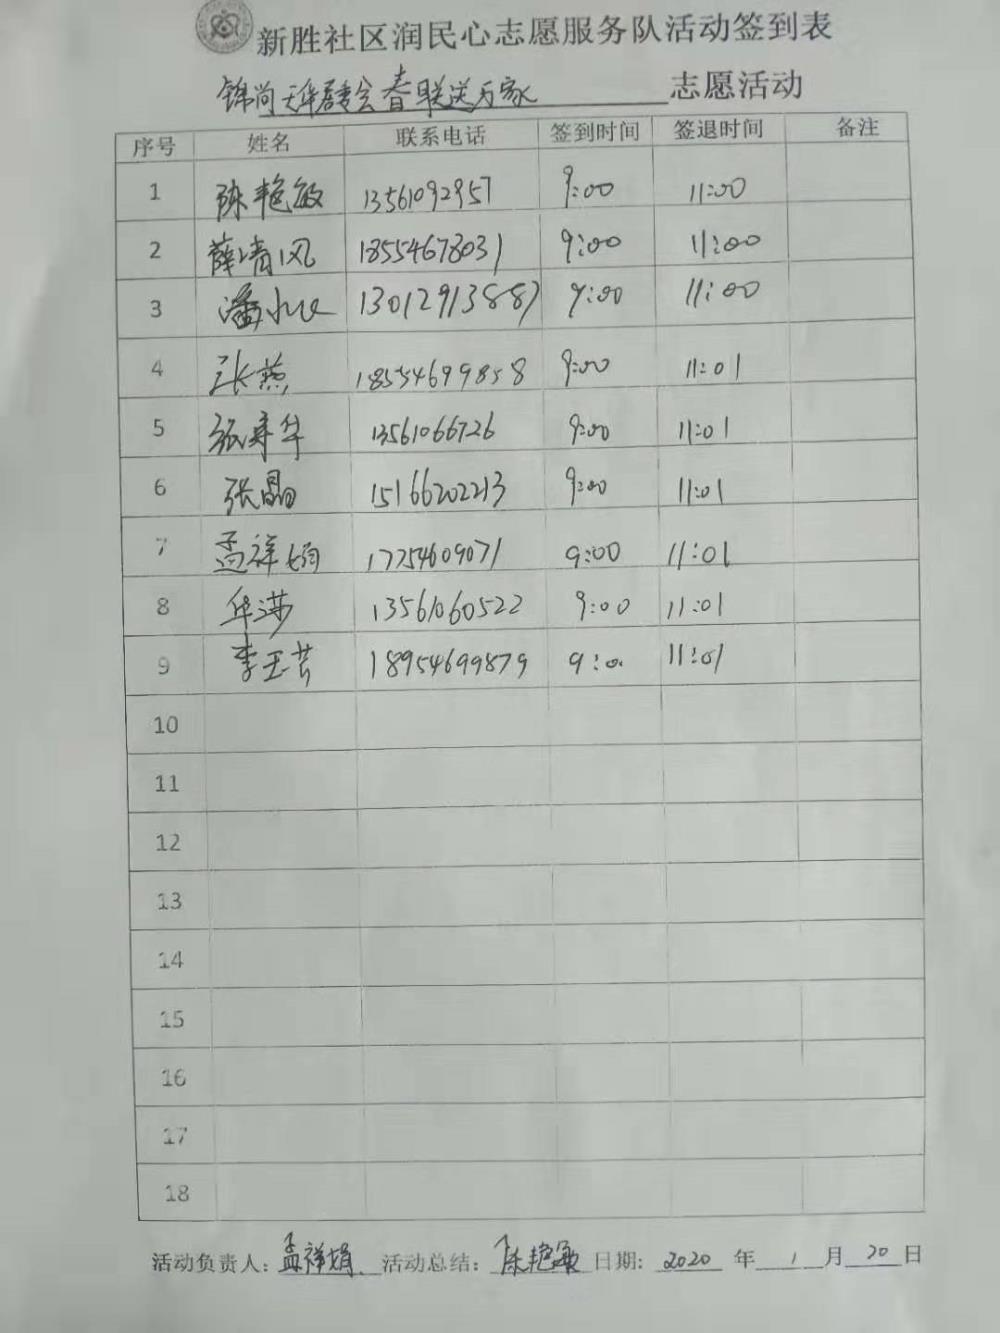 新胜社区润民心志愿服务队活动签到表
锦尚天华居委会春联送万家 志愿活动
序号 姓名 联系电话 签到时间 签退时间 备注
1 陈艳敏 13561092957 9:00 11:00
2 薛清风 18554678031 9:00 11:00
3 潘 13012913887 9:00 11:00
4 张燕 18554699858 9:00 11:01
5 张寿华 13561066726 9:00 11:01
6 张晶 15166202213 9:00 11:01
7 孟祥娟 17754609071 9:00 11:01
8 华 13561060522 9:00 11:01
9 李玉芸 18954699879 9:0. 11:01
10
11
12
13
14
15
16
17
18
活动负责人: 孟祥娟 活动总结: 陈艳敏 日期: 2020 年 1 月 20 日